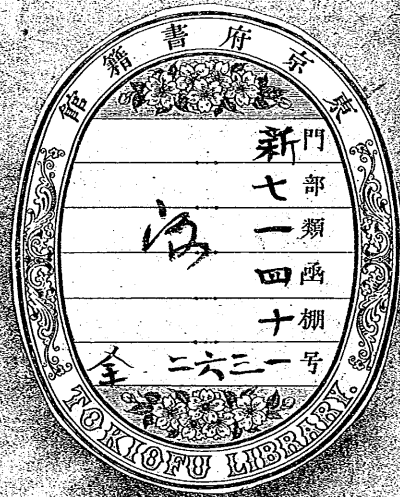 東京府書籍館
門 新
部 七
類 一
函 四
棚 十
号 一三六二 全
TOKIOFU LIBRARY.